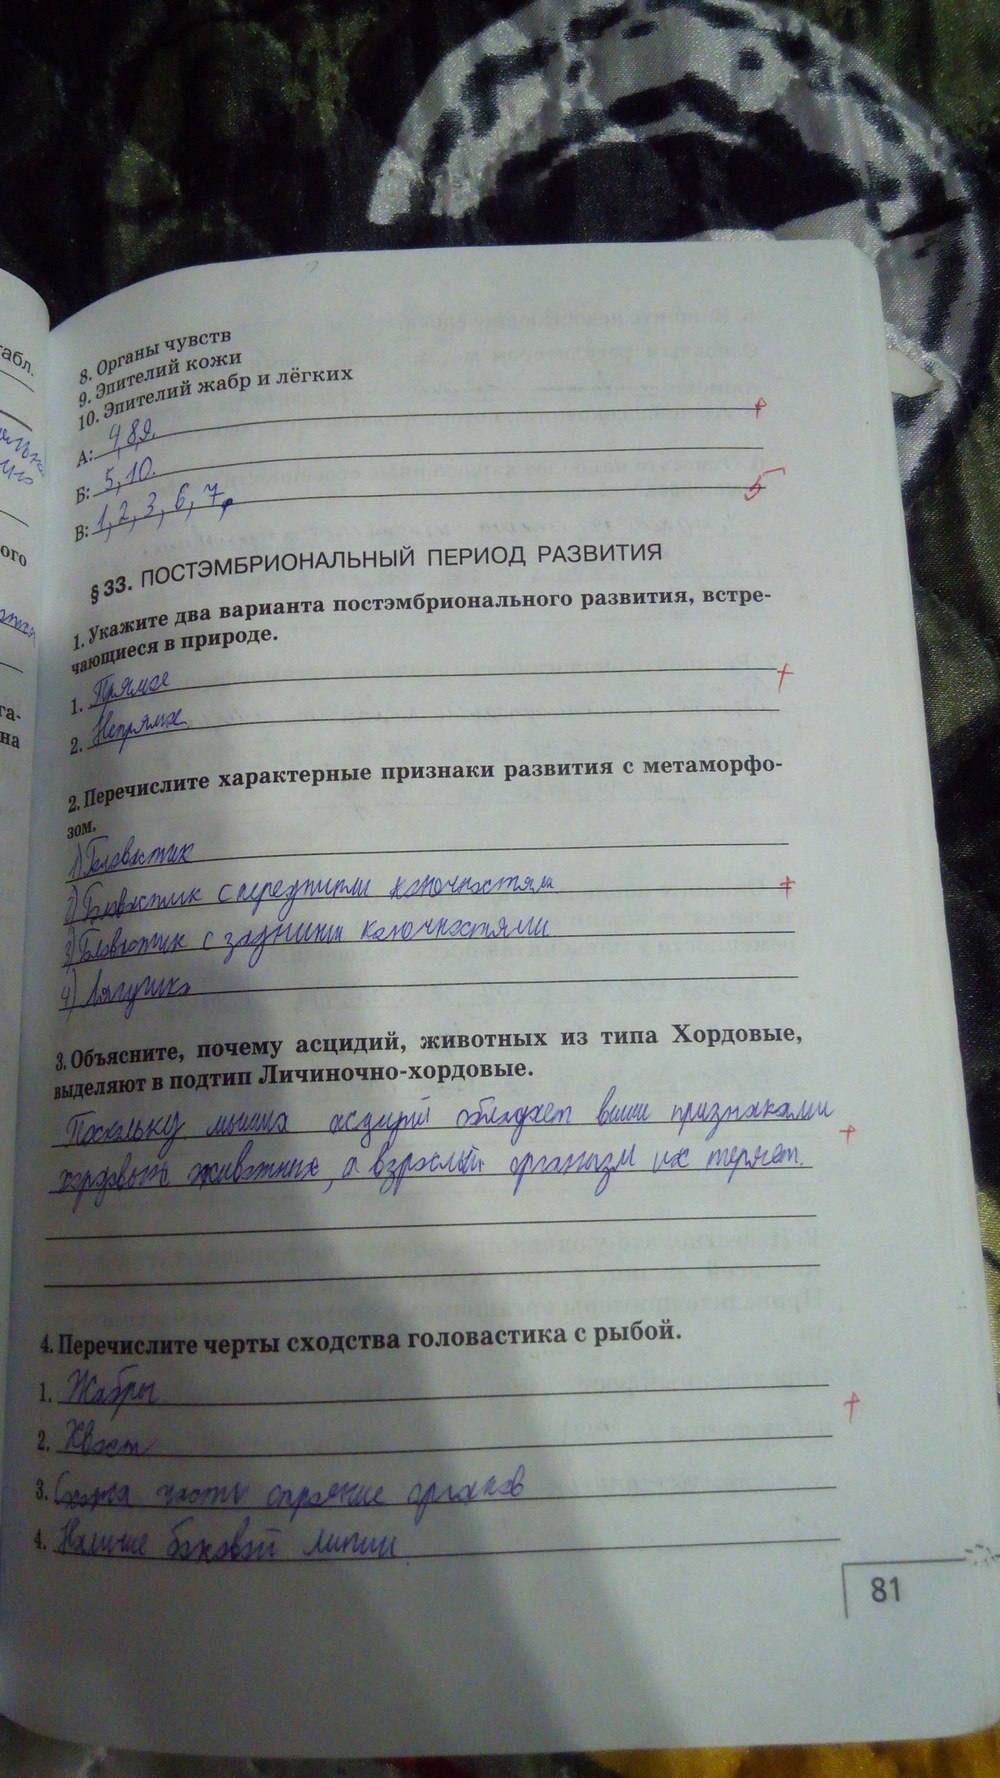 табл.
ого
га-
на
8. Органы чувств
9. Эпителий кожи
10. Эпителий жабр и лёгких
А: 4,8,9.
Б: 5,10.
В: 1,2,3,6,7,
5
§ 33. ПОСТЭМБРИОНАЛЬНЫЙ ПЕРИОД РАЗВИТИЯ
1. Укажите два варианта постэмбрионального развития, встре-
чающиеся в природе.
1. Прямое
2. Непрямое
2. Перечислите характерные признаки развития с метаморфо-
зом.
1) Головастик
2) Головастик с передними конечностями
3) Головастик с задними конечностями
4) Лягушка
3. Объясните, почему асцидий, животных из типа Хордовые,
выделяют в подтип Личиночно-хордовые.
Поскольку асцидий обладает всеми признаками
хордовых животных, а взрослый организм их теряет.
4. Перечислите черты сходства головастика с рыбой.
1. Жабры
2. Хвост
3. часть органов
4. Наличие боковой линии
81